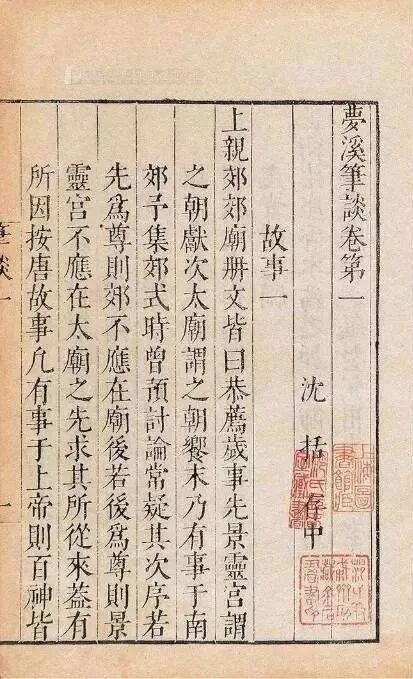 夢溪筆談卷第一
沈括存中
故事一
上親郊郊廟册文皆曰恭薦歲事先景靈宮謂
之朝獻次太廟謂之朝饗末乃有事于南
郊予集郊式時曾預討論常疑其次序若
先爲尊則郊不應在廟後若後爲尊則景
靈宮不應在太廟之先求其所從來蓋有
所因按唐故事凢有事于上帝則百神皆
筆談一